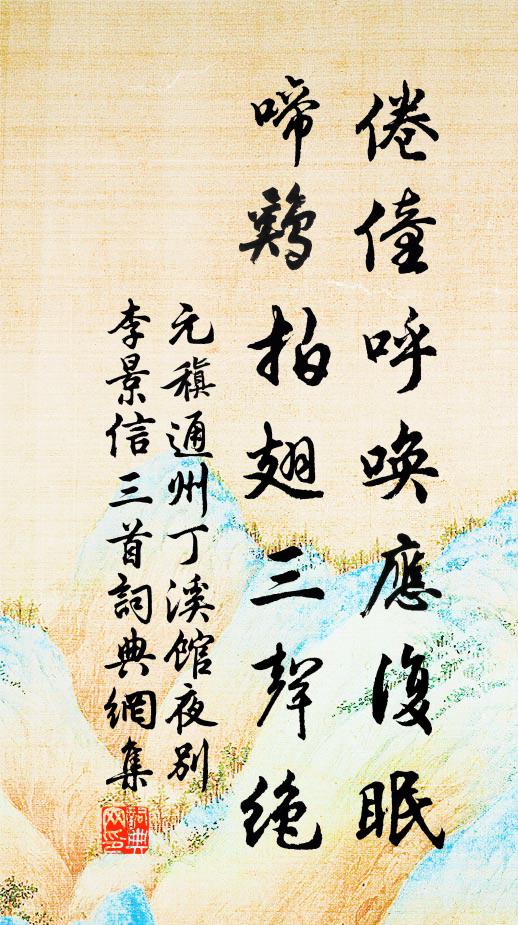 倦僮呼喚應復眠
啼鷄拍翅三聲絶
元稹通州丁溪館夜別
李景信三首詞典網集